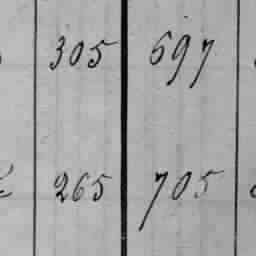 305 697
265 705